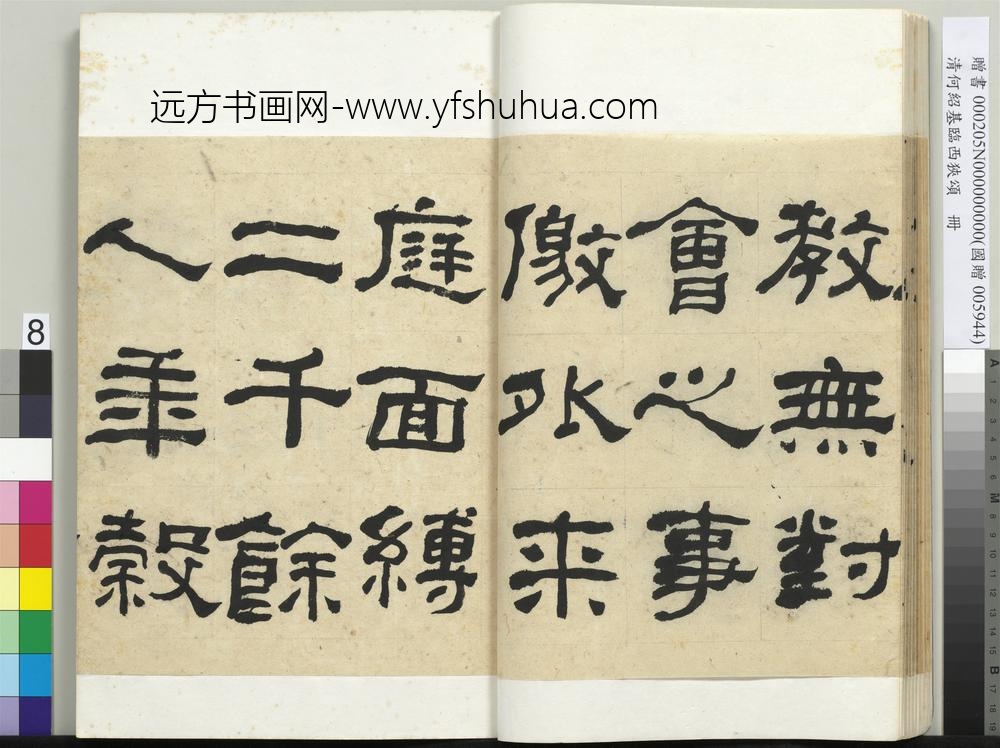 远方书画网-www.yfshuhua.com
教無對
會之事
徼外来
庭面縛
二千餘
人年穀
贈書 000205N000000000(國贈 005944)
清何紹基臨西狹頌 冊
8
A 1 2 3 4 5 6 M 8 9 10 11 12 13 14 15 B 17 18 19